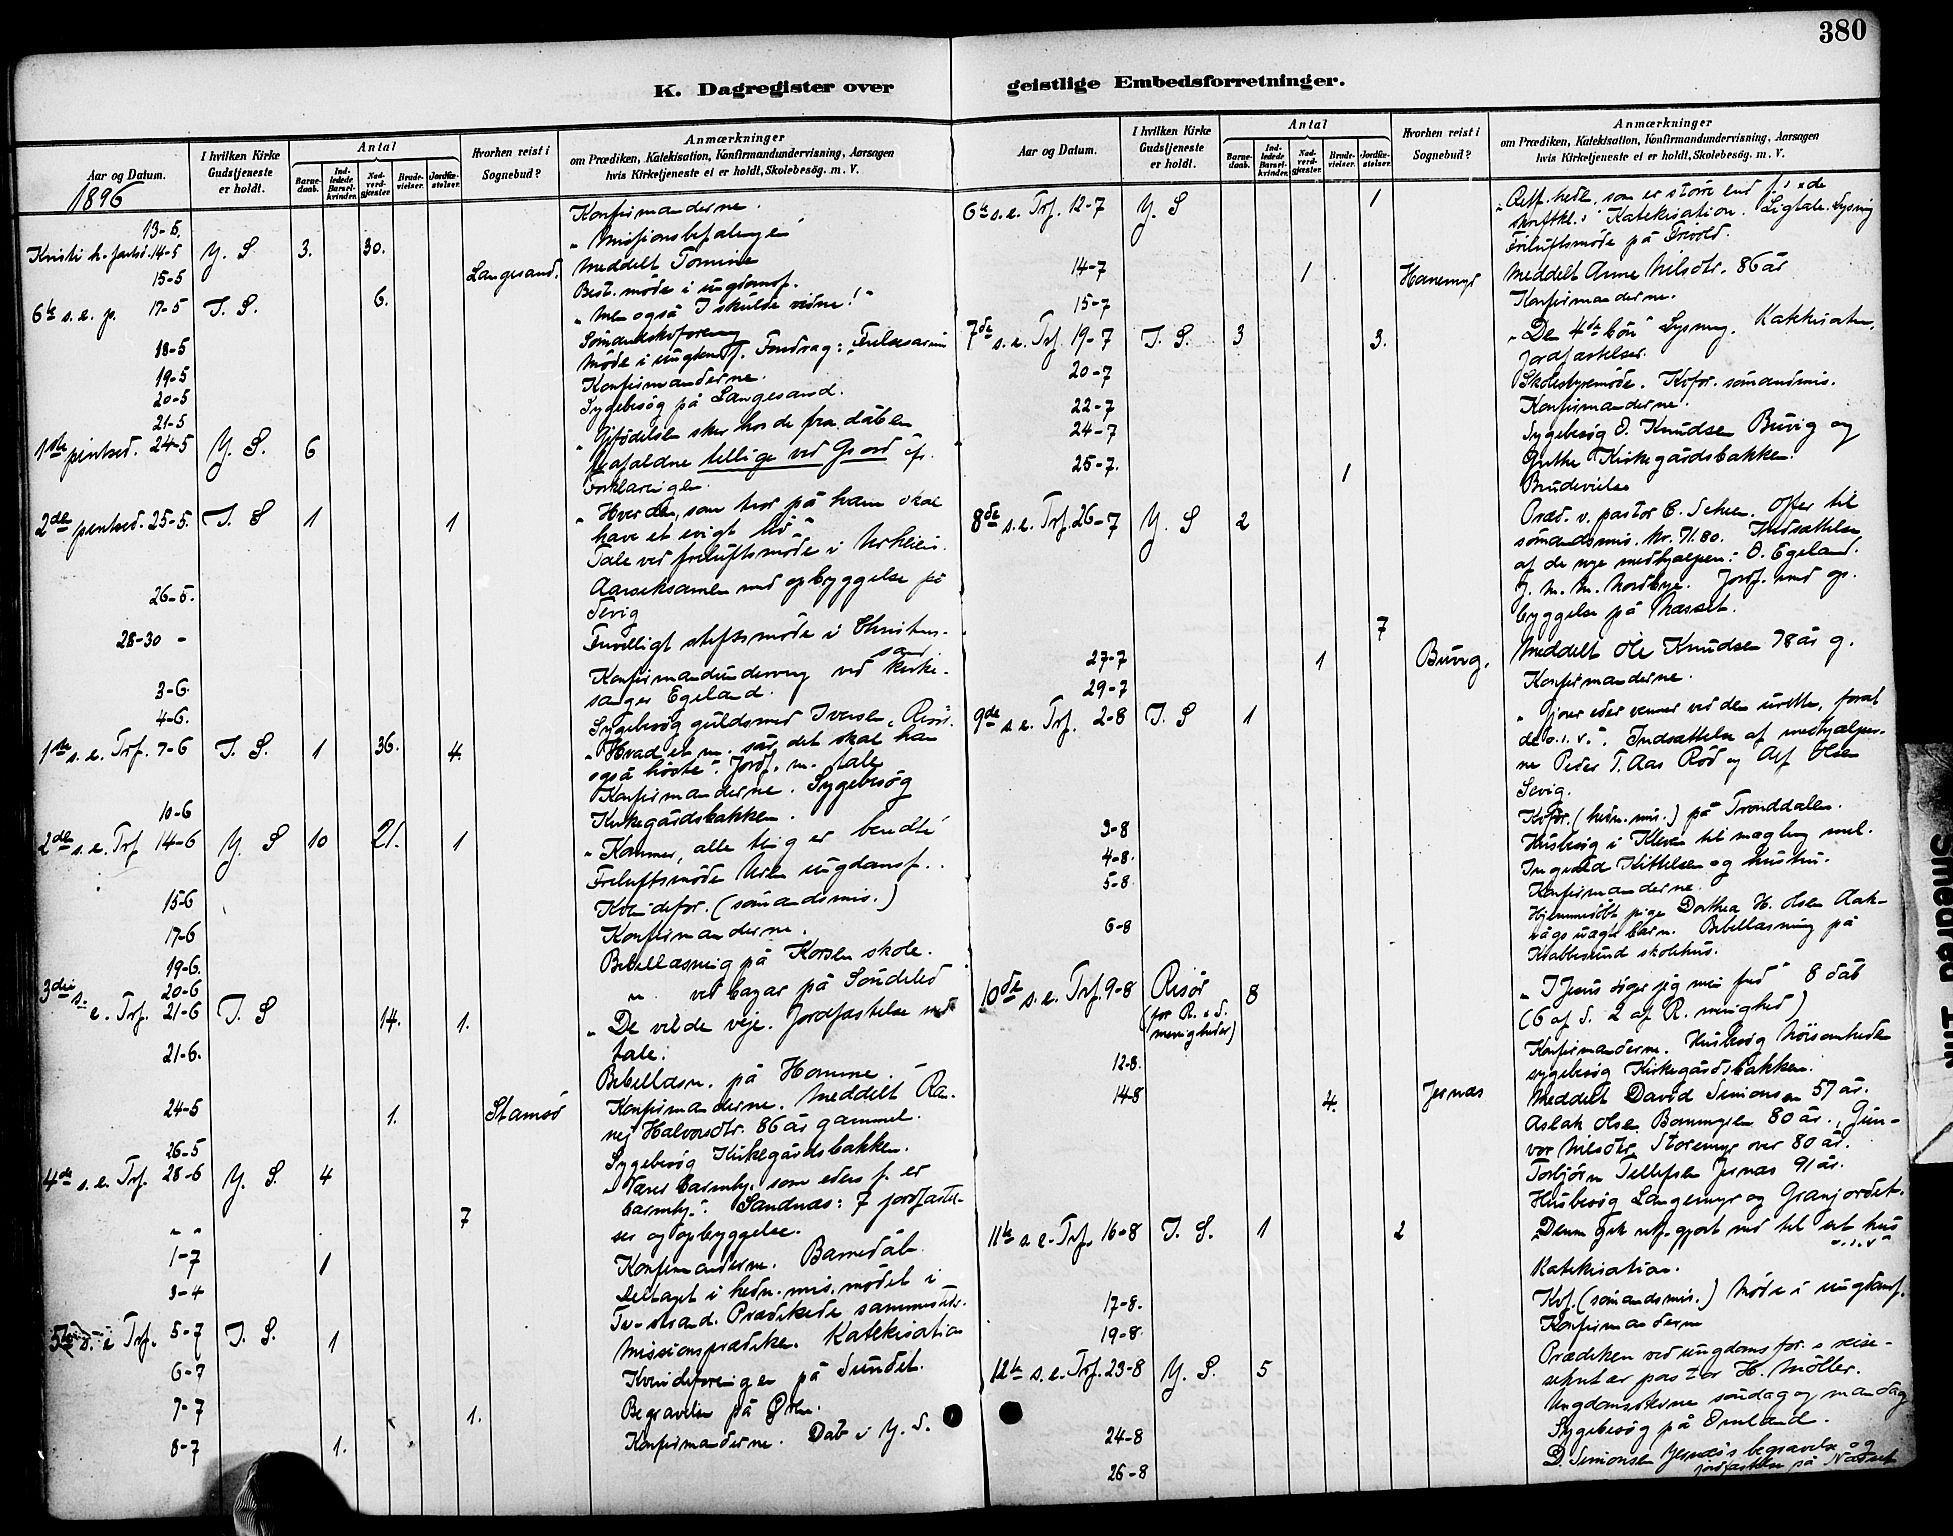 380
K. Dagregister over
geistlige Embedsforretninger.
Aar og Datum.
I hvilken Kirke
Gudstjeneste
er holdt.
Antal
Barne-
daab.
Ind-
ledede
Barsel-
kvinder.
Nad-
verd-
gjæster.
Brude-
vielser.
Jordfæ-
stelser.
Hvorhen reist i
Sognebud?
Anmærkninger
om Prædiken, Katekisation, Konfirmandundervisning, Aarsagen
hvis Kirketjeneste ei er holdt, Skolebesøg. m. V.
1896
13-5. Konfirmanderne.
Kristi h. fartsd. 14-5 Y. S. 3. 30. „Missionsbefalingen“
15-5 Langesand. Meddelt Tomine
Best. møde i ungdomsf.
6te s. e. p. 17-5 I. S. 6. „Men også I skulde vidne!“
Sømandskvforening
18-5 Møde i ungdomsf. Foredrag:
19-5 Konfirmanderne.
20-5 Sygebesøg på Langesand.
21-5
1ste pintsed. 24-5 Y. S. 6 „Gjfødelsen sker hos de fra dåben
frafaldne tillige ved Gs ord
Forklaringen.
2den pintsed. 25-5. I. S 1 1 „Hver den, som tror på ham skal
have et evigt liv“
Tale ved friluftsmøde i
26-5. Aarseksamen med opbyggelse på
Sevig
28-30 - Frivilligt stiftsmøde i Christians-
sand
3-6. Konfirmandunderving ved kirke-
sanger Egeland.
4-6. Sygebesøg guldsmed Iversen, Risør.
1ste s. e. Trf. 7-6 I. S. 1 36. 4. „Hvad et m. sår, det skal han
også høste“. Jordf. m. tale
Konfirmanderne. Sygebesøg
10-6 Kirkegårdsbakken.
2den s. e. Trf 14-6 Y. S 10 21. 1 „Kommer, alle ting er beredte“
Friluftsmøde ungdomsf.
15-6 Kvindefor. (sømandsmis.)
17-6 Konfirmanderne.
19-6. Bibellæsning på Korsen skole.
20-6 „ ved bazar på Søndeled
3die s. e. Trf. 21-6 I. S 14. 1. „De vilde veje. Jordfæstelse med
tale.
21-6. Bibellæsn. på Homme.
24-5 1. Stamsø Konfirmanderne. Meddelt Ra-
nej Halvorsdtr. 86 år gammel.
26-5 Sygebesøg Kirkegårdsbakken.
4de s. e. Trf. 28-6 Y. S. 4 „Værer barmhj. som eders f. er
barmhj.“. Sandnæs: 7 jordfæstel-
7 ser og opbyggelse.
1-7 1 Konfirmanderne. Barnedåb.
3-4 Deltaget i hedn. mis. mødet i
Tvedestrand. Prædikede sammesteds.
5te s. e Trf. 5-7 I. S. 1 Missionsprædiken. Katekisation
6-7 Kvindeforeningen på Sundet.
7-7 1. Begravelse på
8-7 1. Konfirmanderne. Dåb i Y. S.
Aar og Datum.
I hvilken Kirke
Gudstjeneste
er holdt.
Antal
Barne-
daab.
Ind-
ledede
Barsel-
kvinder.
Nad-
verd-
gjæster.
Brude-
vielser.
Jordfæ-
stelser.
Hvorhen reist i
Sognebud?
Anmærkninger
om Prædiken, Katekisation, Konfirmandundervisning, Aarsagen
hvis Kirketjeneste ei er holdt, Skolebesøg. m. V.
6te s. e. Trf. 12-7 Y. S 1 „Retf.hed, som er større end
skriftkl.s“ Katekisation. Ligtale. Lysning
Friluftsmøde på Frivold.
14-7 1 Hanemyr Meddelt Anne Nilsdtr. 86 år
15-7 Konfirmanderne.
7de s. e. Trf. 19-7 I. S. 3 3. „Den 4de bøn“ Lysning. Katekisation,
Jordfæstelser.
20-7 Skolestyremøde. Kvfor. sømandsmis.
22-7 Konfirmanderne.
24-7 Sygebesøg O. Knudsen Buvig og
Grethe Kirkegårdsbakken.
25-7. 1 Brudevielse
8de s. e. Trf. 26-7 Y. S 2 Præd. v. pastor C. Offer til
sømandsmis. Kr. 71.80. Indsættelse
af de nye medhjælpere: O. Egeland.
J. M. M. Nordbye. Jordf. med op-
7 byggelse på Næsset.
27-7 1 Buvig. Meddelt Ole Knudsen 78 år g.
29-7 Konfirmanderne.
9de s. e. Trf. 2-8 I. S 1 „Gjører eder venner ved den urette, forat
de o. s. v.“. Indsættelse af medhjælper-
ne Peder T. Aas Rød og Alf Olsen
Sevig.
3-8 Kvfor. (hedn. mis.) på Tronddalen.
4-8. Husbesøg i Kleven
5-8 Ingebred Kittelsen og hustru.
Konfirmanderne.
6-8 Hjemmedøbt pige Dorthea H. Olsen Aak-
vågs uægte barn. Bibellæsning på
Krabbesund skolehus.
10de s. e. Trf. 9-8 Risør
(for R. & S.
menigheder) 8 „I Jesus søger jeg min fred“ 8 dåb
(6 af S. 2 af R. menighed)
12-8. Konfirmanderne. Husbesøg Nøisomheden
sygebesøg Kirkegårdsbakken.
14-8 4. Jernæs Meddelt David Simonsen 57 år.
Aslak Olsen Bommyren 80 år., Gun-
vor Nilsdtr. Storemyr over 80 år.
Torbjørn Tellefsen Jernæs 91 år.
Husbesøg Langemyr og Granjordet.
11te s. e. Trf. 16-8 I. S. 1 2 „Denne gik retf.gjort ned til sit hus
o. s. v“
Katekisation.
17-8. Kvf. (sømandsmis.) Møde i ungdomsf.
19-8. Konfirmanderne
12te s. e. Trf. 23-8 Y. S. 5 Prædiken ved ungdomsfor.s reise-
sekretær pastor H. Møller.
Ungdomsstevne søndag og mandag
24-8 Sygebesøg på Ømland.
26-8 D. Simonsen Jernæs's begravelse og
jordfæstelse på Næsset
Smedrød